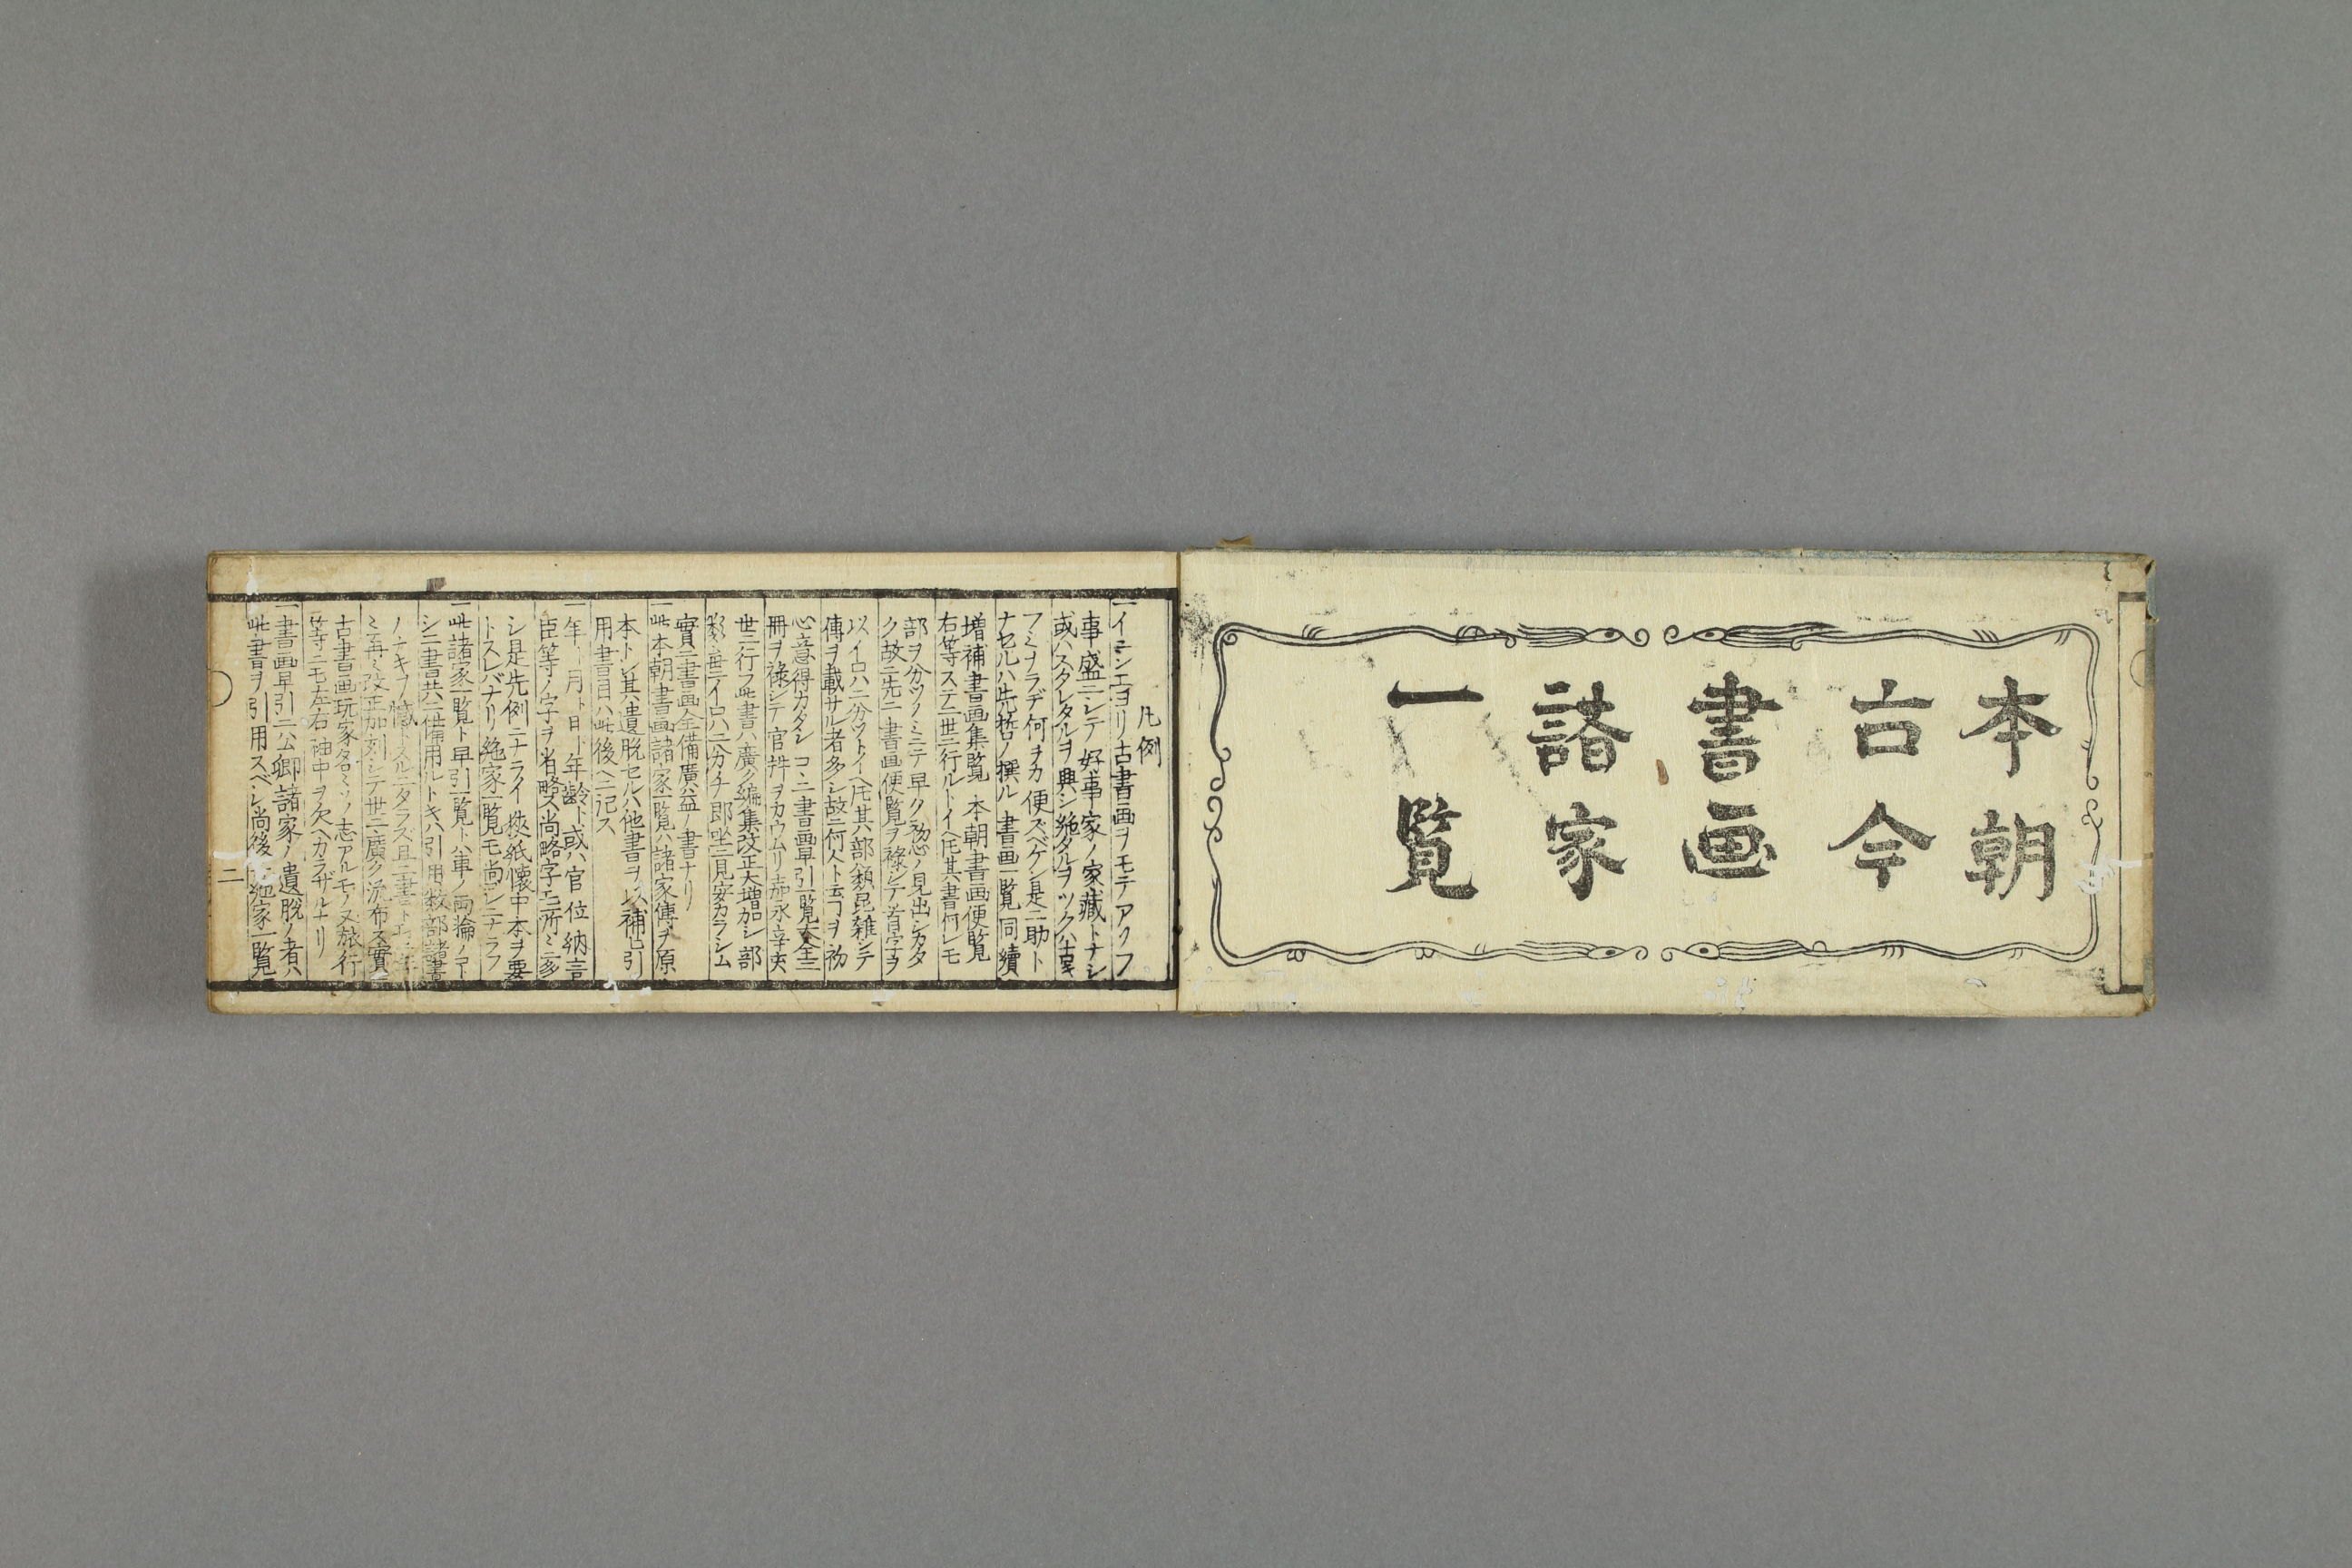 本朝
古今
書画
諸家
一覧
凡例
一イニシエヨリ古書画ヲモテアソフ
事盛ニシテ好事家ノ家蔵トナシ
或ハスタレタルヲ興シ絶タルヲツク
フミナラデ何ヲカ便ズベケン是ニ助ト
ナセルハ先哲ノ撰ル書画一覧同續
増補書画集覧本朝書画便覧
右等ステニ世ニ行ルトイヘ𪜈其書何レモ
部ヲ分ツノミニテ早ク初心ノ見出シカタ
ク故ニ先ニ書画便覧ヲ祿シテ首字ヲ
以イロハニ分ツトイヘ𪜈其部類昆雑シテ
傳ヲ載サル者多シ故ニ何人ト云ヿヲ初
心意得カダシコヽニ書画早引一覧大全三
冊ヲ祿シテ官許ヲカウムリ嘉永辛亥
世ニ行フ此書ハ廣ク編集改正大増加シ部
類毎ニイロハニ分チ即坐ニ見安カラシム
實ニ書画全備廣益ノ書ナリ
一此本朝書画諸家一覧ハ諸家傳ヲ原
本トシ其遺脱セルハ他書ヲ以補フ引
用書目ハ此後ヘニ記ス
一年月日年齢ト或ハ官位納言
臣等ノ字ヲ省略ス尚略字モ所ミニ多
シ是先例ニナライ狭紙懐中本ヲ要
トスレバナリ絶家一覧モ尚シニナラフ
一此諸家一覧ト早引一覧トハ車ノ両輪ノコト
シ二書共ニ備用ルトキハ引用数部諸書
ノナキヲ憾トスルニタラズ且二書
ミ再ミ改正加刻シテ世ニ廣ク流布ス實
古書画玩家名ミソノ志アルモノ又旅行
等ニモ左右袖中ヲ欠ヘカラザルナリ
一書画早引ニ公卿諸家ノ遺脱ノ者ハ
此書ヲ引用スベシ尚後絶家一覧
二